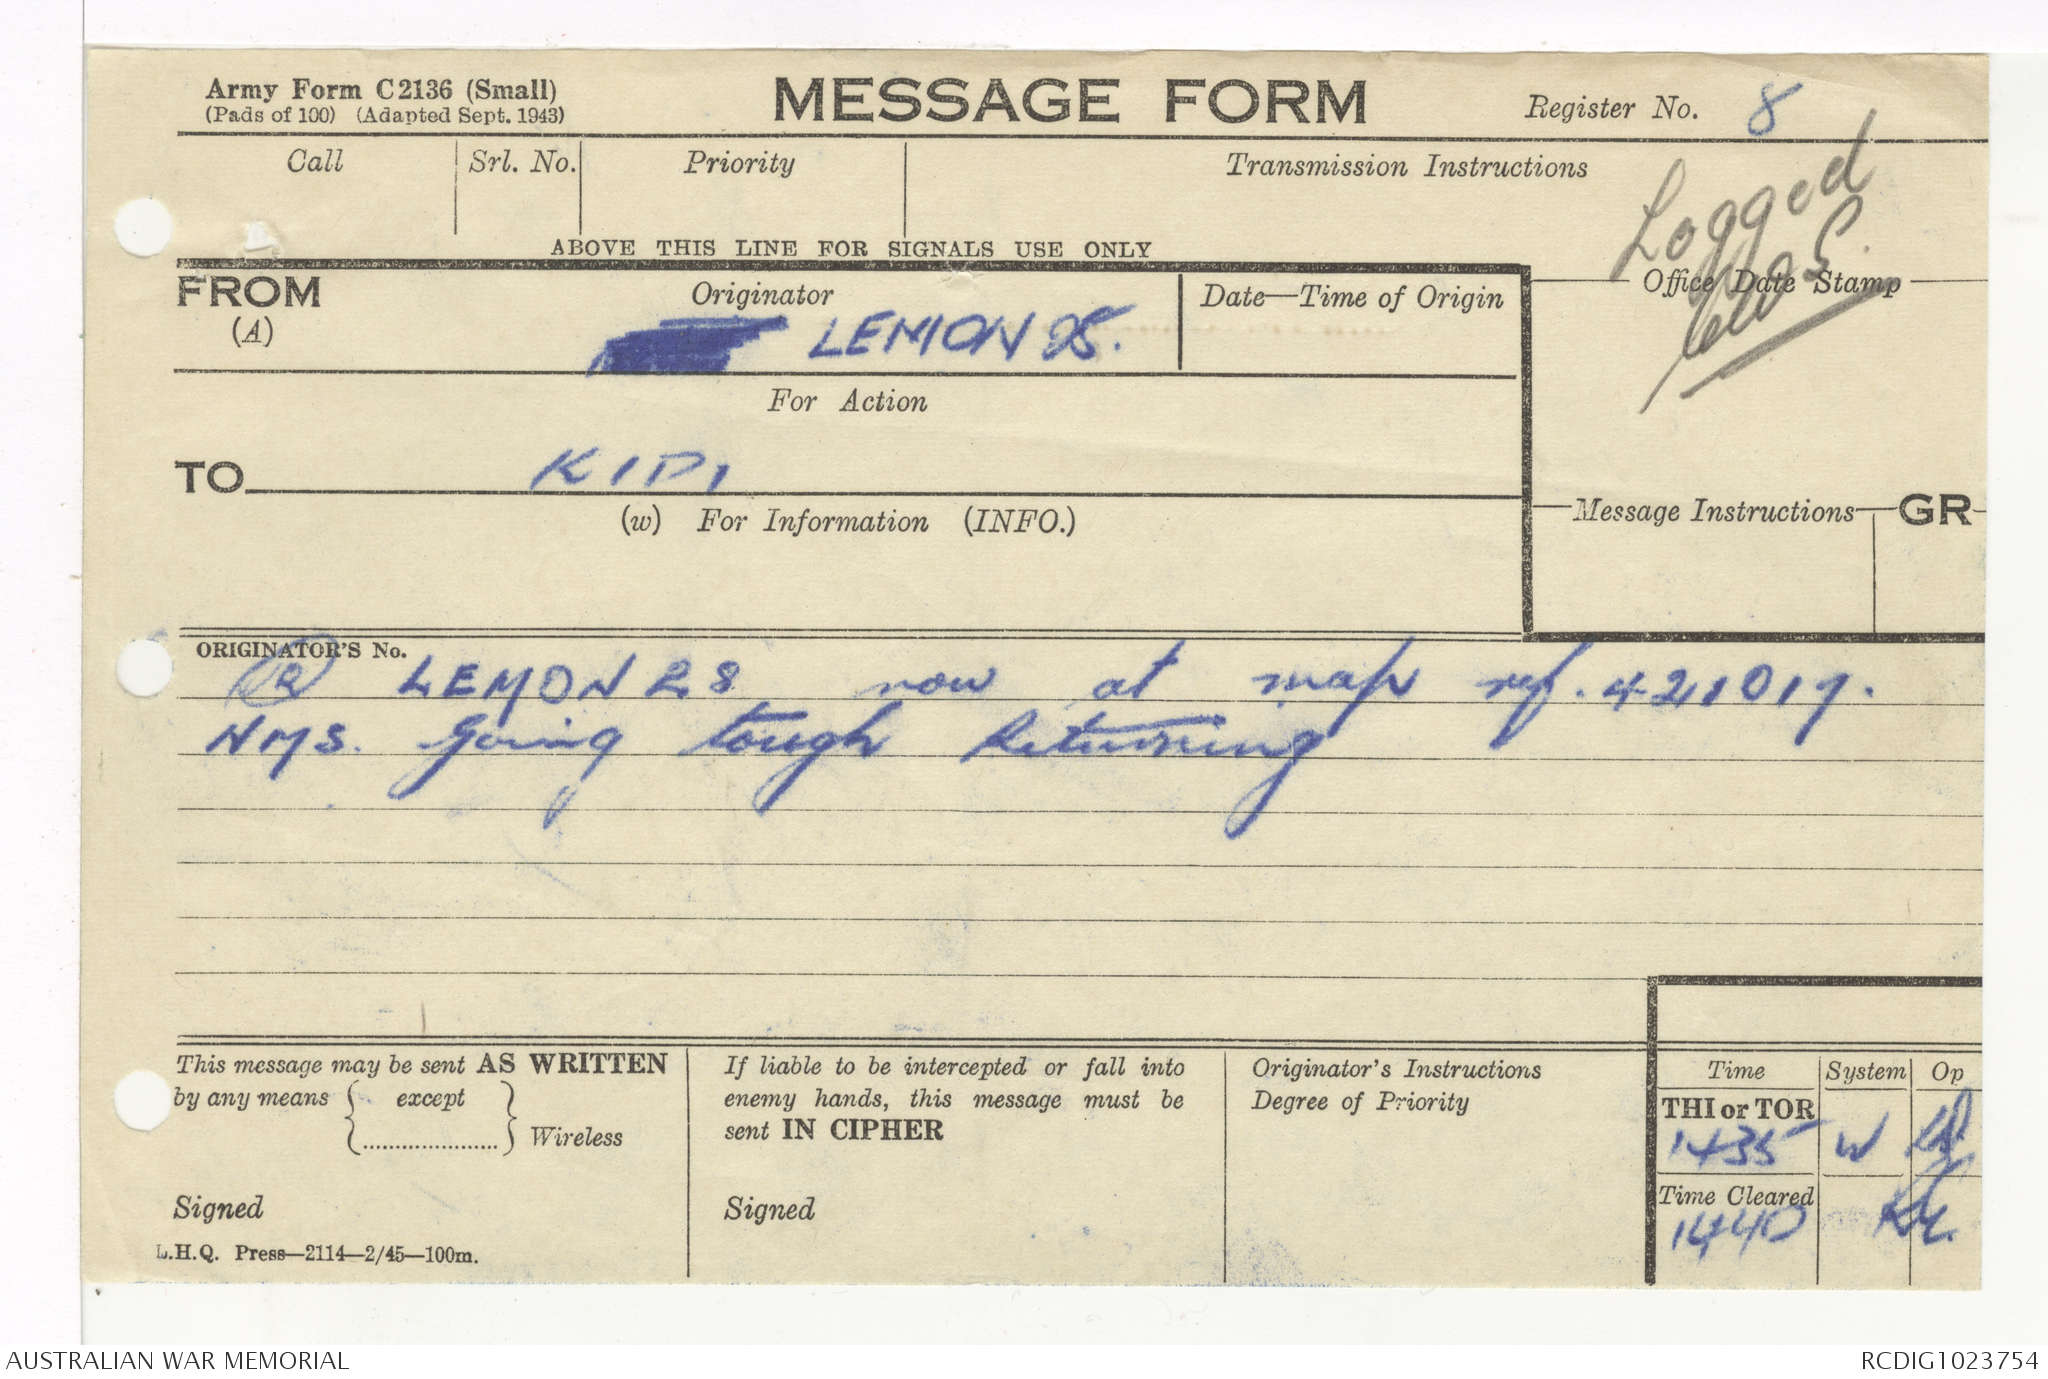 Army Form C2136 (Small)
(Pads of 100) (Adapted Sept. 1943)
MESSAGE FORM
Register No. 8
Call
Srl. No.
Priority
Transmission Instructions
Logged
ABOVE THIS LINE FOR SIGNALS USE ONLY
FROM
(A)
Originator
LEMON
Date—Time of Origin
Office Date Stamp
For Action
TO
KIPI
(w) For Information (INFO.)
Message Instructions
GR
ORIGINATOR'S No.
LEMON 28 now at map ref. 421017.
NMS. Going tough Returning
This message may be sent AS WRITTEN
by any means { except
...................... } Wireless
Signed
L.H.Q. Press—2114—2/45—100m.
If liable to be intercepted or fall into
enemy hands, this message must be
sent IN CIPHER
Signed
Originator's Instructions
Degree of Priority
Time
System
Op
THI or TOR
1435
W
Time Cleared
1440
AUSTRALIAN WAR MEMORIAL
RCDIG1023754